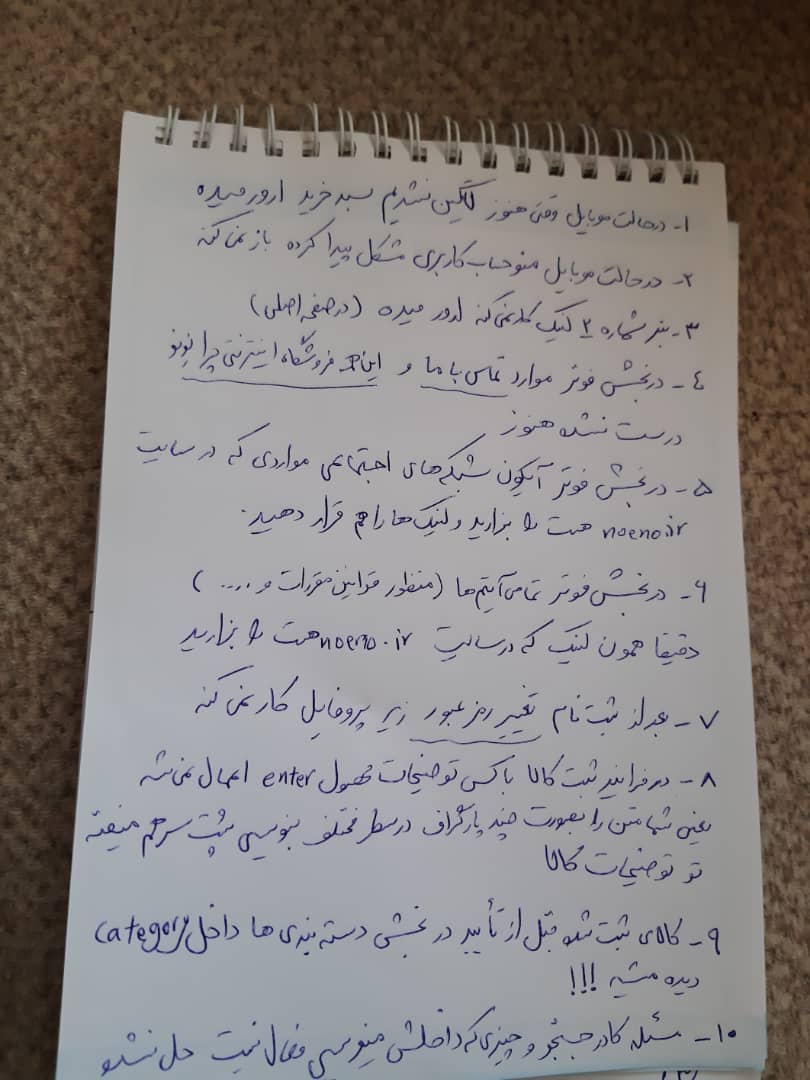 ۱- در حالت موبایل وقتی هنوز لاگین نشدیم سبد خرید ارور میده
۲- در حالت موبایل منو حساب کاربری مشکل پیدا کرده باز نمی کنه
۳- بنر شماره ۲ کلیک کار نمی کنه ارور میده (در صفحه اصلی)
۴- در بخش فوتر موارد تماس با ما و این فروشگاه اینترنتی چرا نونو
درست نشده هنوز
۵- در بخش فوتر آیکون شبکه های اجتماعی مواردی که در سایت
noeno.ir هست را بزارید و لینک ها را هم قرار دهید.
۶- در بخش فوتر تمامی آیتم ها (منظور قوانین مقررات و ....)
دقیقا همون لینک که در سایت noeno.ir هست را بزارید
۷- بعد از ثبت نام تغییر رمز عبور زیر پروفایل کار نمی کنه
۸- در فرایند ثبت کالا باکس توضیحات محصول enter اعمال نمی شه
یعنی شما متن را بصورت چند پاراگراف در سطر مختلف بنویسی پشت سر هم میفته
تو توضیحات کالا
۹- کالای ثبت شده قبل از تأیید در بخش دسته بندی ها داخل category
دیده میشه !!!
۱۰- مسئله کادر جستجو و چیزی که داخلش مینویسی فعال نیست حل نشده